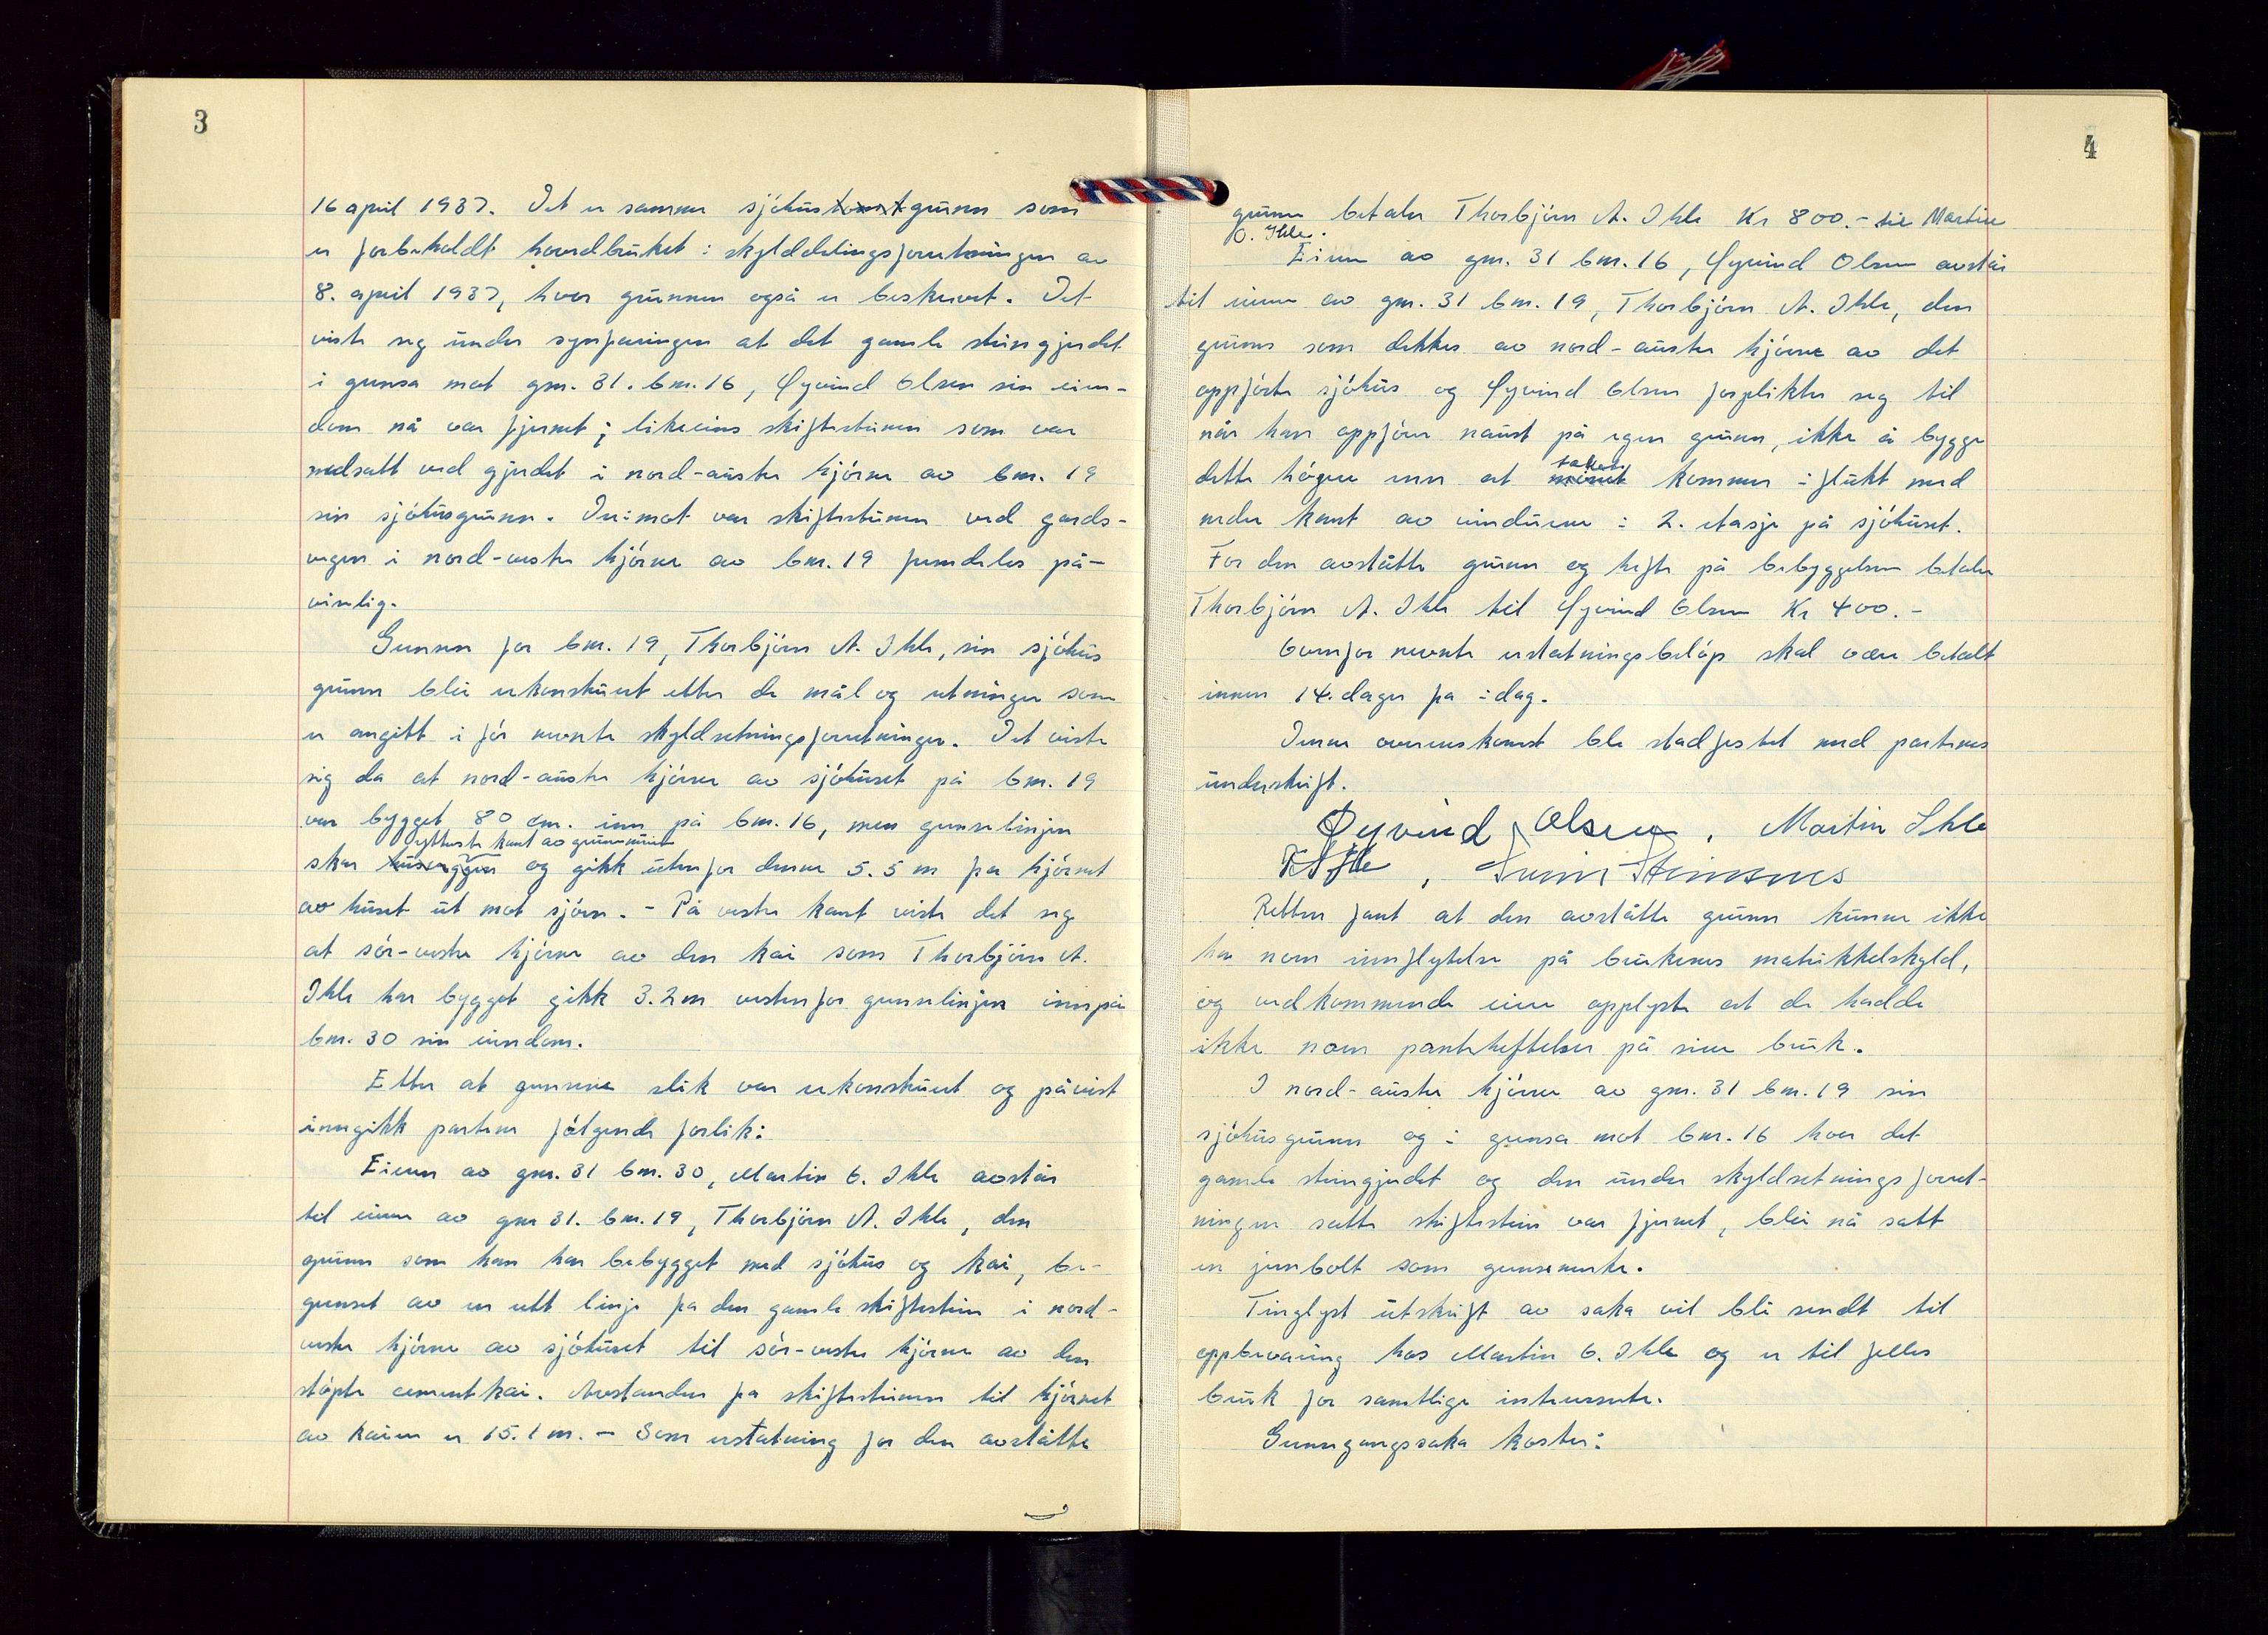 3
16 april 1937. Det er samme sjøhustomtgrunn som
er forbeholdt hovedbruket i skylddelingsforretningen av
8. april 1937, hvor grunnen også er beskrevet. Det
viste seg under synfaringen at det gamle steingjerdet
i grensa mot gnr. 31. bnr. 16, Øyvind Olsen sin eien-
dom nå var fjernet; likeeins skiftesteinen som var
nedsatt ved gjerdet i nord-austre hjørne av bnr. 19
sin sjøhusgrunn. Derimot var skiftesteinen ved gards-
vegen i nord-vestre hjørne av bnr. 19 fremdeles på-
viselig.
Grensen for bnr. 19, Thorbjørn A. Ihle, sin sjøhus
grunn blei rekonstruert etter de mål og retninger som
er angitt i før nevnte skyldsetningsforretninger. Det viste
sig da at nord-austre hjørne av sjøhuset på bnr. 19
var bygget 80 cm. inn på bnr. 16, men grenselinjen
ytterste kant av grunnmur
skar husveggen og gikk utenfor denne 5.5 m fra hjørnet
av huset ut mot sjøen. - På vestre kant viste det seg
at sør-vestre hjørne av den kai som Thorbjørn A.
Ihle har bygget gikk 3.2 m vestenfor grenselinjen innpå
bnr. 30 sin eiendom.
Etter at grensene slik var rekonstruert og påvist
inngikk partene følgende forlik:
Eieren av gnr. 31 bnr. 30, Martin O. Ihle avstår
til eieren av gnr 31. bnr. 19, Thorbjørn A. Ihle, den
grunn som han har bebygget med sjøhus og kai, be-
grenset av en rett linje fra den gamle skiftestein i nord-
vestre hjørne av sjøhuset til sør-vestre hjørne av den
støpte cementkai. Avstanden fra skiftesteinen til hjørnet
av kaien er 15.1 m. - Som erstatning for den avståtte
4
grunn betaler Thorbjørn A. Ihle Kr 800.- til Martin
O. Ihle.
Eieren av gnr. 31 bnr. 16, Øyvind Olsen avstår
til eieren av gnr. 31 bnr. 19, Thorbjørn A. Ihle, den
grunn som dekkes av nord-austre hjørne av det
oppførte sjøhus og Øyvind Olsen forplikter seg til
når han oppfører naust på egen grunn, ikke å bygge
taket
dette høgere enn at mønet kommer i flukt med
nedre kant av vinduene i 2. etasje på sjøhuset.
For den avståtte grunn og hefte på bebyggelsen betaler
Thorbjørn A. Ihle til Øyvind Olsen Kr 400.-
Ovenfor nevnte erstatningsbeløp skal være betalt
innen 14. dager fra idag.
Denne overenskomst ble stadfestet med partenes
underskrift.
Øyvind Olsen, Martin Ihle
T A Ihle,
Retten fant at den avståtte grunn kunne ikke
ha noen innflytelse på brukenes matrikkelskyld,
og vedkommende eiere opplyste at de hadde
ikke noen panteheftelser på sine bruk.
I nord-austre hjørne av gnr. 31 bnr. 19 sin
sjøhusgrunn og i grensa mot bnr. 16 hvor det
gamle steingjerdet og den under skyldsetningsforret-
ningen satte skiftestein var fjernet, blei nå satt
en jernbolt som grensemerke.
Tinglyst utskrift av saka vil bli sendt til
oppbevaring hos Martin O. Ihle og er til felles
bruk for samtlige interesserte.
Grensegangssaka koster: